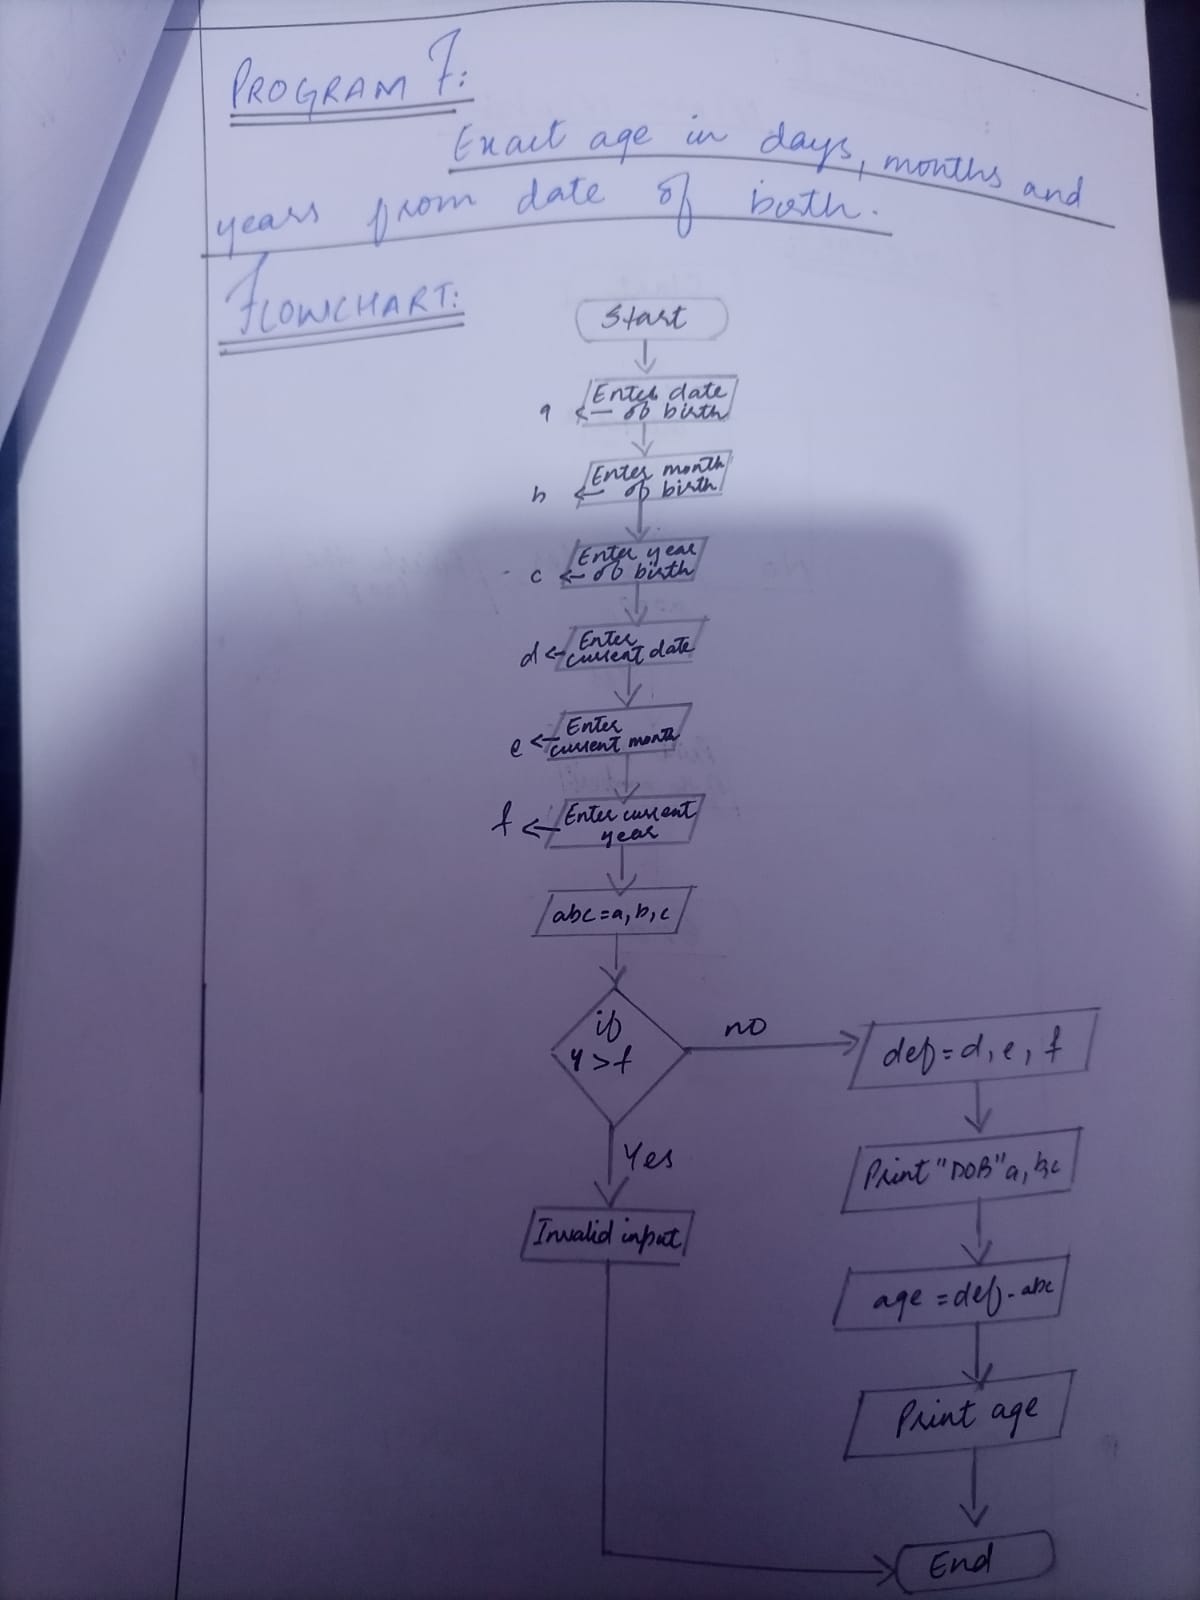 PROGRAM 7:
Exact age in days, months and
years from date of birth.
FLOWCHART:
Start
Enter date
a ← of birth
Enter month
b ← of birth
Enter year
c ← of birth
Enter
d ← current date
Enter
e ← current month
f ← Enter current
year
abc = a, b, c
if
y > f
no
def = d, e, f
Yes
Print "DOB" a, b, c
Invalid input
age = def - abc
Print age
End